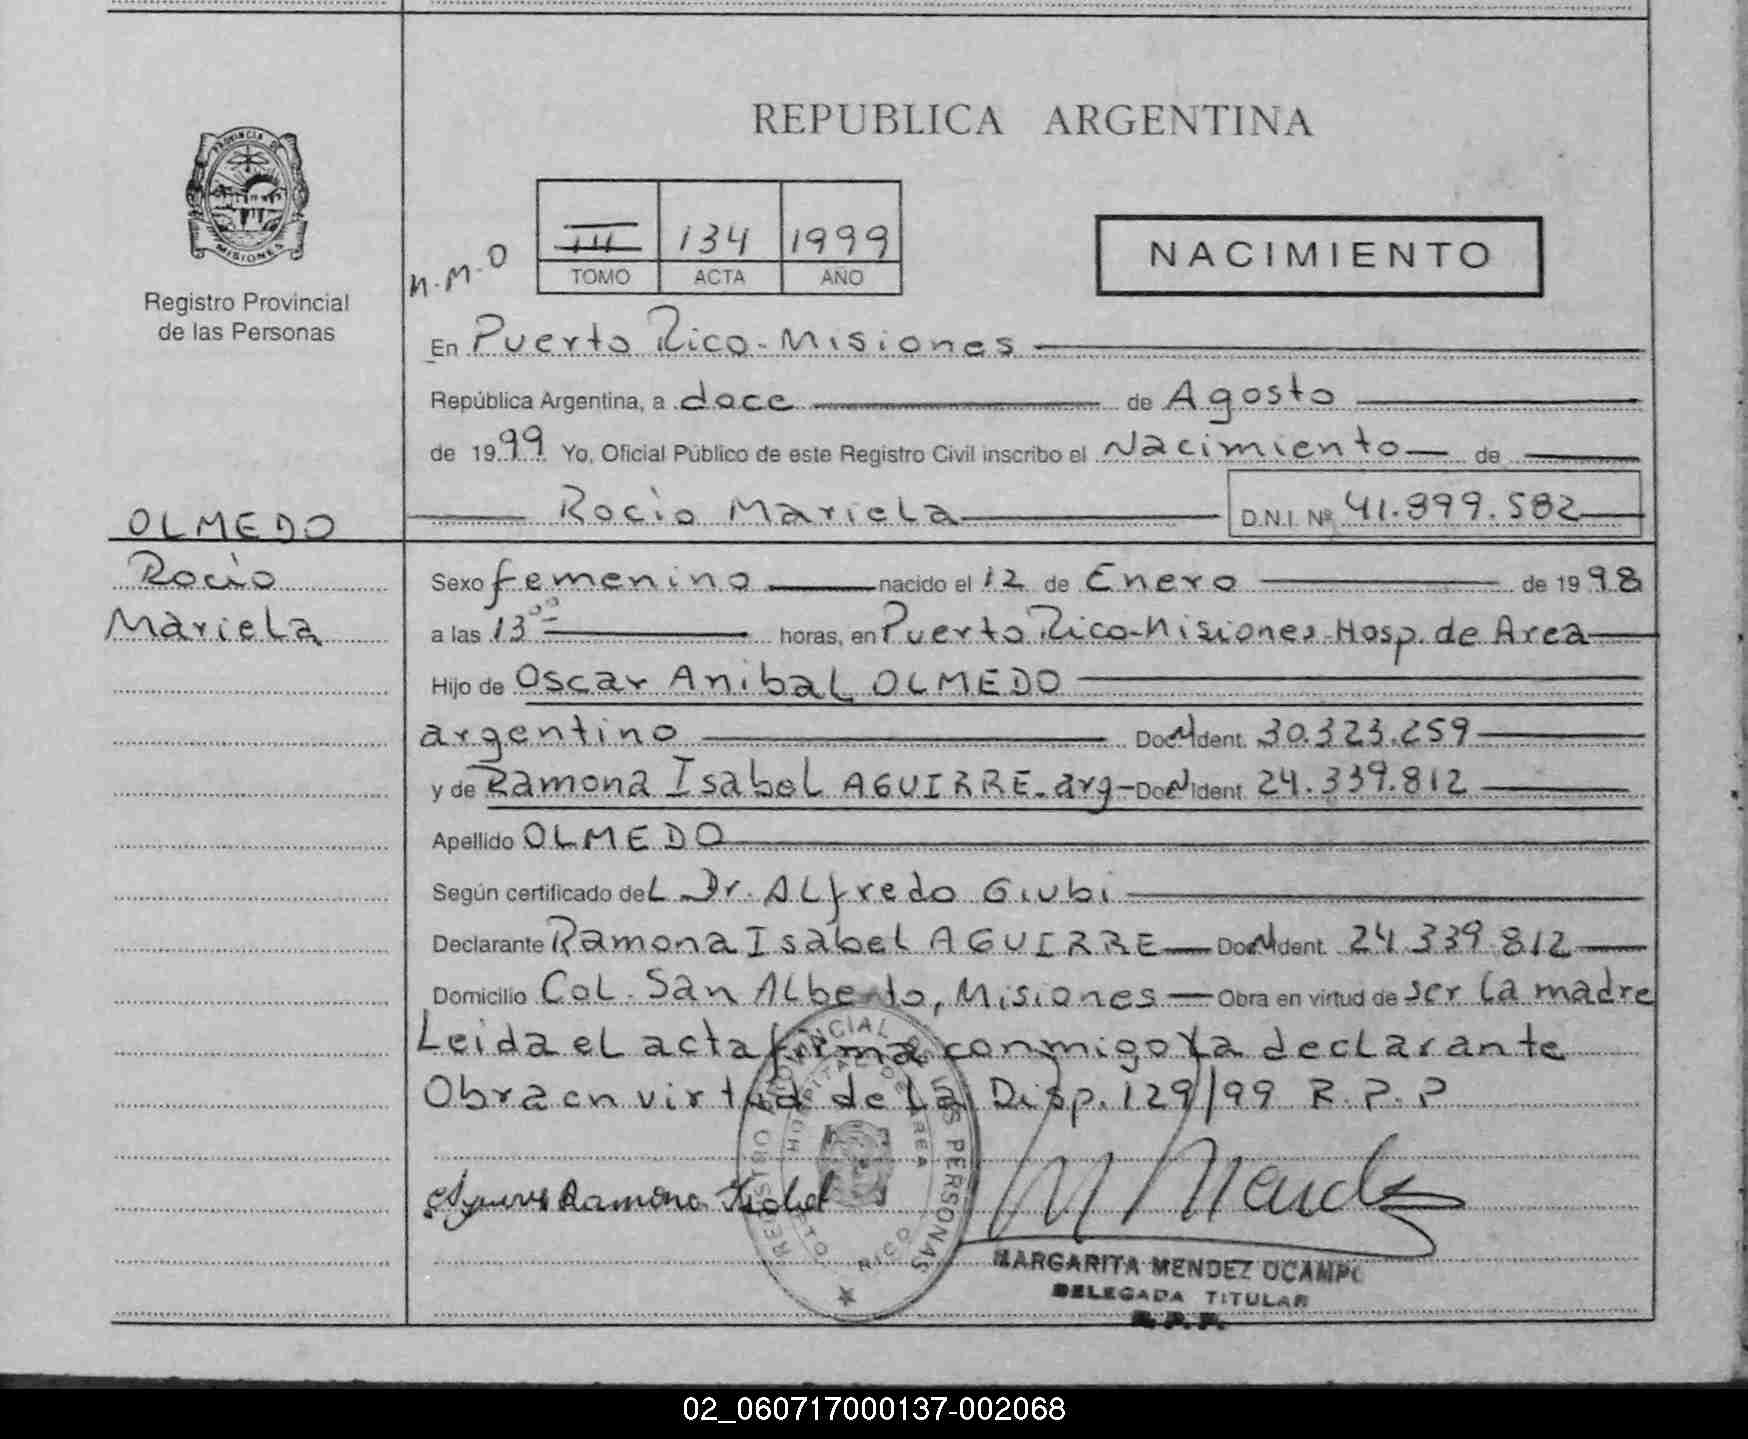 REPUBLICA ARGENTINA
PROVINCIA DE
MISIONES
Registro Provincial
de las Personas
III 134 1999
TOMO ACTA AÑO
N.M.O
NACIMIENTO
En Puerto Rico - Misiones
República Argentina, a doce de Agosto
de 1999 Yo, Oficial Público de este Registro Civil inscribo el Nacimiento de
Rocío Mariela D.N.I. Nº 41.899.582
OLMEDO
Rocío
Mariela
Sexo femenino nacido el 12 de Enero de 1998
a las 13 00 horas, en Puerto Rico-Misiones-Hosp. de Area
Hijo de Oscar Anibal OLMEDO
argentino Doc N Ident. 30.323.259
y de Ramona Isabel AGUIRRE - arg - Doc N Ident. 24.339.812
Apellido OLMEDO
Según certificado del Dr. Alfredo Giubi
Declarante Ramona Isabel AGUIRRE Doc N Ident. 24.339.812
Domicilio Col. San Alberto, Misiones Obra en virtud de ser la madre
Leida el acta firma conmigo la declarante
Obra en virtud de la Disp. 129/99 R.P.P
REGISTRO PROVINCIAL DE LAS PERSONAS
HOSPITAL DE AREA
PTO. RICO
Aguirre Ramona Isabel
M Mendez
MARGARITA MENDEZ OCAMPO
DELEGADA TITULAR
R.P.P.
02_060717000137-002068